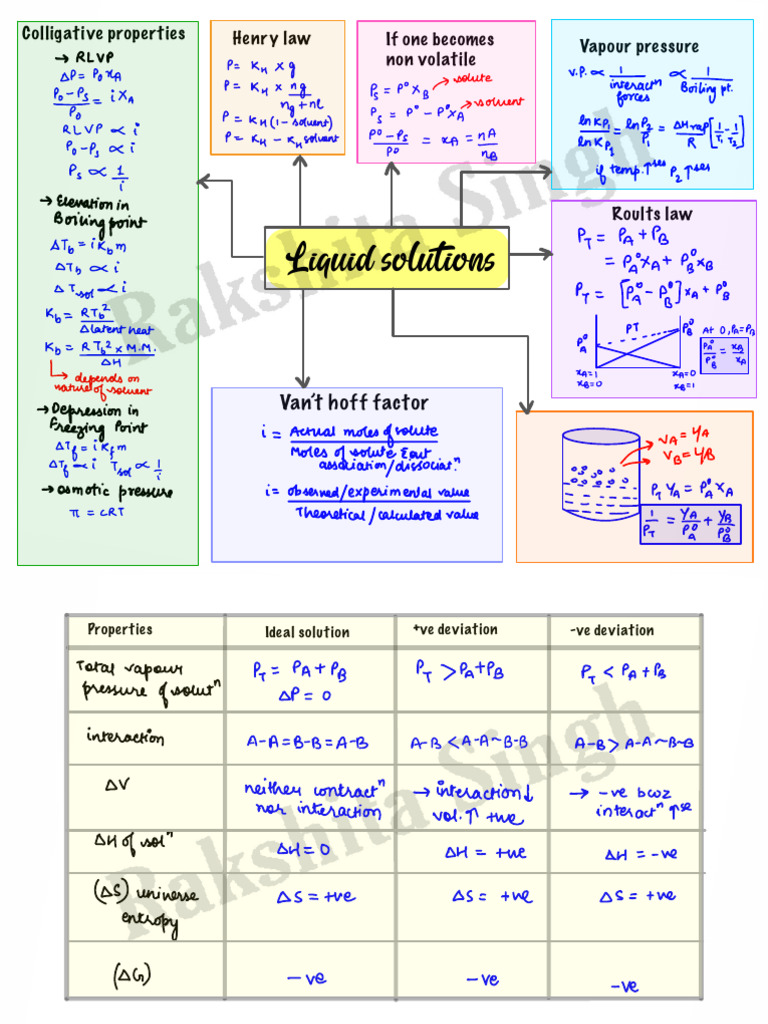 Colligative properties
→ RLVP
ΔP = P₀xA
P₀-Pₛ/P₀ = iXA
RLVP ∝ i
P₀-Pₛ ∝ i
Pₛ ∝ 1/i
→ Elevation in
Boiling point
ΔTb = iKbm
ΔTb ∝ i
ΔTsol ∝ i
Kb = RTb²/Δlatent heat
Kb = RTb² × M.M./ΔH
→ depends on
nature of solvent
→ Depression in
Freezing Point
ΔTf = iKfm
ΔTf ∝ i Tsol ∝ 1/i
→ osmotic pressure
π = CRT
Henry law
P = KH × g
P = KH × ng/ng+nl
P = KH(1-solvent)
P = KH - KH solvent
If one becomes
non volatile
Pₛ = P⁰XB → solute
Pₛ = P⁰ - P⁰XA → solvent
P⁰-Pₛ/P⁰ = xA = nA/nB
Vapour pressure
V.P. ∝ 1/interactⁿ forces ∝ 1/Boiling pt.
ln KP₁/ln KP₂ = ln P₂/P₁ = ΔH vap/R [1/T₁ - 1/T₂]
if temp.↑ses P₂↑ses
Roults law
PT = PA + PB
= PA⁰xA + PB⁰xB
PT = [PA⁰ - PB⁰]xA + PB⁰
PA⁰ PT PB⁰
At O, PA=PB
PA⁰/PB⁰ = xB/xA
xA=1 xA=0
xB=0 xB=1
Liquid solutions
Van't hoff factor
i = Actual moles of solute/Moles of solute
association/dissociatⁿ.
i = observed/experimental value/Theoretical/calculated value
VA = YA
VB = YB
PT YA = PA⁰ XA
1/PT = YA/PA⁰ + YB/PB⁰
Properties Ideal solution +ve deviation -ve deviation
Total vapour pressure of solutⁿ PT = PA+PB ΔP = 0 PT > PA+PB PT < PA+PB
interaction A-A=B-B=A-B A-B < A-A~B-B A-B > A-A~B-B
ΔV neither contractⁿ nor interaction → interaction↓ vol.↑ +ve → -ve bcoz interactⁿ ↑se
ΔH of solⁿ ΔH = 0 ΔH = +ve ΔH = -ve
(ΔS) universe entropy ΔS = +ve ΔS = +ve ΔS = +ve
(ΔG) -ve -ve -ve
Rakshita Singh
Rakshita Singh